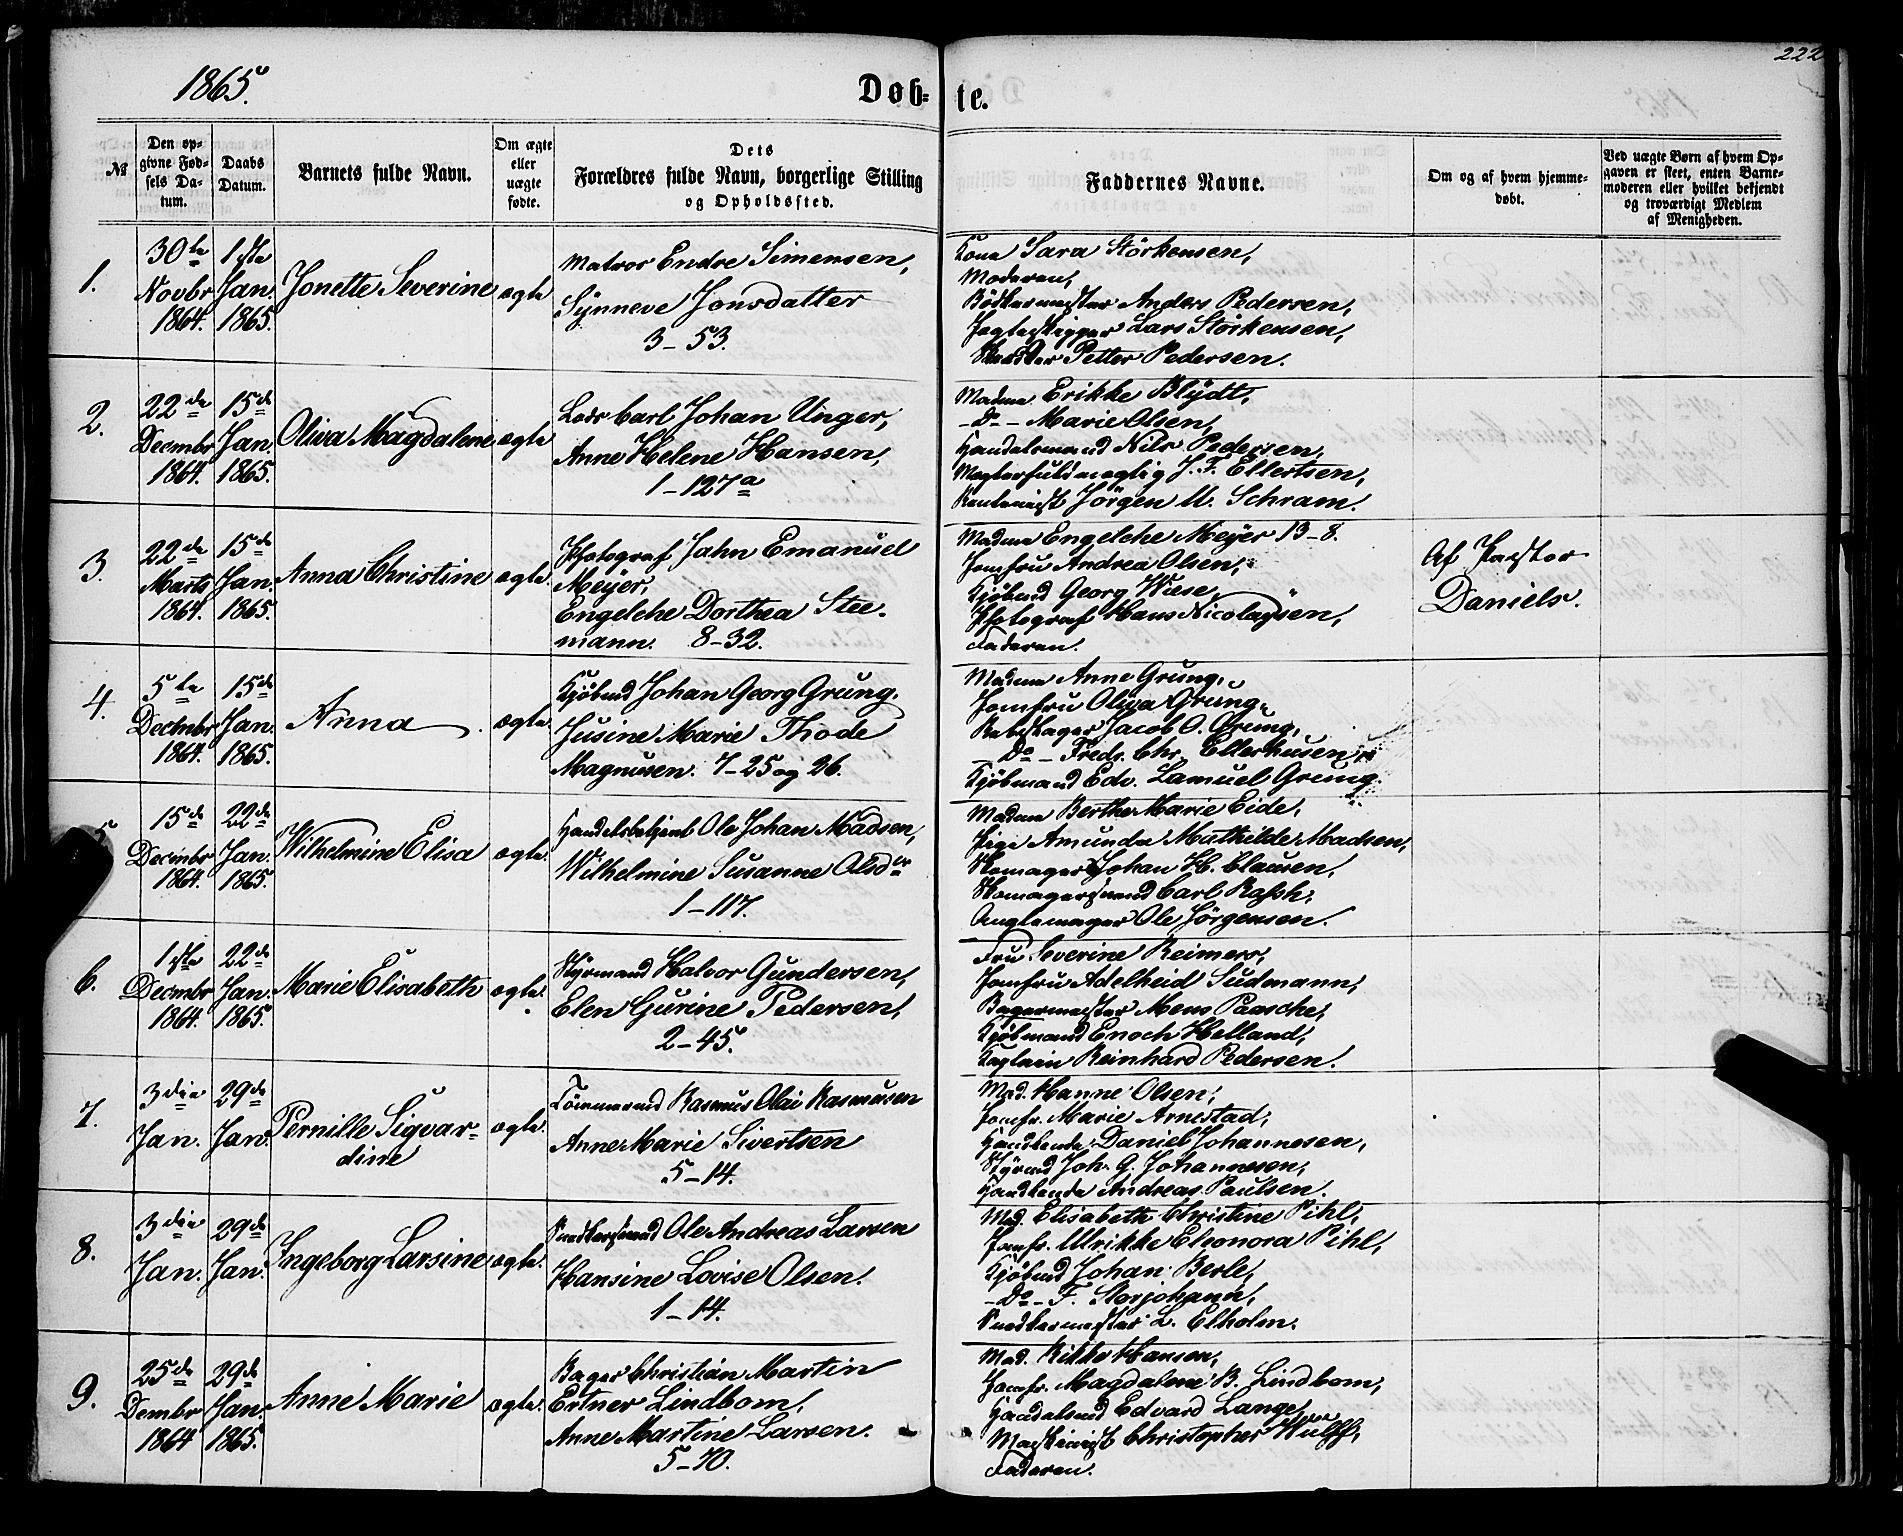 222
1865.
Døb-
te.
№
Den op-
givne Fød-
sels Da-
tum.
Daabs
Datum.
Barnets fulde Navn.
Om ægte
eller
uægte
fødte.
Dets
Forældres fulde Navn, borgerlige Stilling
og Opholdssted.
Faddernes Navne.
Om og af hvem hjemme-
døbt.
Ved uægte Børn af hvem Op-
gaven er skeet, enten Barne-
moderen eller hvilket bekjendt
og troværdigt Medlem
af Menigheden.
1.
30te
Novbr
1864.
1ste
Jan.
1865.
Jonette Severine
ægte
Matros Endre Simensen,
Synneve Jonsdatter
3-53.
Kone Sara Störkensen,
Moderen,
Bödkermester Anders Pedersen,
Jagteskipper Lars Störkensen,
Petter Pedersen.
2.
22de
Decmbr
1864.
15de
Jan.
1865.
Oliva Magdalene
ægte
Lods Carl Johan Unger,
Anne Helene Hansen,
1-127a
Madme Erikke Blydt,
-Do- Marie Olsen,
Handelsmand Nils Pedersen,
J. F. Ellertsen,
Jörgen M. Schram.
3.
22de
Marts
1864.
15de
Jan.
1865.
Anna Christine
ægte.
Fotograf Jahn Emanuel
Meyer,
Engelche Dorthea Stee-
mann. 8-32.
Madme Engelche Meyer 13-8.
Jomfru Andrea Olsen,
Kjöbmd Georg Wiese,
Fotograf Hans Nicolaysen,
Faderen.
Af Pastor
Daniels.
4.
5te
Decmbr
1864.
15de
Jan.
1865.
Anna
ægte.
Kjöbmd Johan Georg Grung,
Jusine Marie Thode
Magnusen. 7-25 og 26.
Madme Anne Grung,
Jomfru Oliva Grung,
Rebslager Jacob O. Grung,
-Do- Fredr. Chr. Ellerhusen,
Kjöbmand Edv. Lamuel Grung.
5.
15de
Decimbr
1864.
22de
Jan.
1865.
Wilhelmine Elisa
ægte.
Handelsbetjent Ole Johan Madsen,
Wilhelmine Susanne Olsdtr
1-117.
Madme Berthe Marie Eide,
Pige Amunda Mathilde Madsen,
Skomager Johan H. Clausen,
Skomagersvend Carl Rassh,
Ole Jörgensen.
6.
1ste
Decmbr
1864.
22de
Jan.
1865.
Marie Elisabeth
ægte.
Styrmand Halvor Gundersen,
Elen Gurine Pedersen,
2-45.
Fru Severine Reimers,
Jomfru Adelheid Sudmann,
Bagermester Mons Paasche,
Kjöbmand Enoch Helland,
Kaptain Reinhard Pedersen.
7.
3die
Jan.
29de
Jan.
Pernille Sigvar-
dine
ægte.
Tömmermd Rasmus Olai Rasmusen
Anne Marie Sivertsen
5-14.
Mad. Hanne Olsen,
Jomfr. Marie Arnestad,
Handlende Daniel Johannesen,
Styrmd Joh. G. Johannesen,
Handlende Andreas Paulsen.
8.
3die
Jan.
29de
Jan.
Ingeborg Larsine
ægte.
Snedkersvend Ole Andreas Larsen
Hansine Lovise Olsen.
1-14.
Mad. Elisabeth Christine Pihl,
Jomfr. Ulrikke Eleonora Pihl,
Kjöbmd Johan Berle,
-Do- F. Storjohann,
Snedkermester L. Elholm.
9.
25de
Dembr
1864
29de
Jan.
1865.
Anne Marie
ægte.
Bager Christian Martin
Ertner Lindbom,
Anne Martine Larsen.
5-70.
Mad. Rikke Hansen,
Jomfr. Magdalene B. Lindbom,
Handelsmd Edvard Lange,
Maskinist Christopher Wulff,
Faderen.